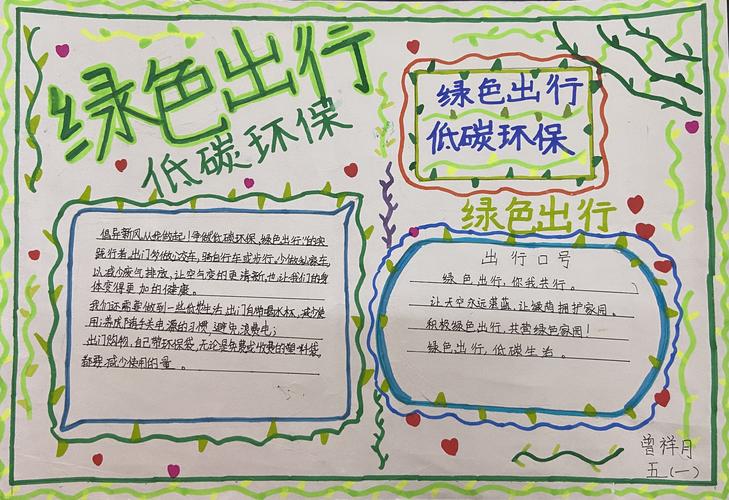 绿色出行
低碳环保
绿色出行
低碳环保
倡导新风从我做起!争做"低碳环保,绿色出行"的实
践行者,出门多做公交车,骑自行车或步行,少做私家车
以减少废气排放,让空气变的更清新,也让我们的身
体变得更加的健康。
我们还需要做到一些低碳生活,出门自带喝水杯,减少使
用;养成随手关电源的习惯,避免浪费电;
出门购物,自己带环保袋,无论是免费或收费的塑料袋,
都要减少使用的量。
绿色出行
出行口号
绿色出行,你我共行。
让天空永远湛蓝,让城市拥护家用。
积极绿色出行,共营绿色家园!
绿色出行,低碳生活。
曾祥月
五(一)